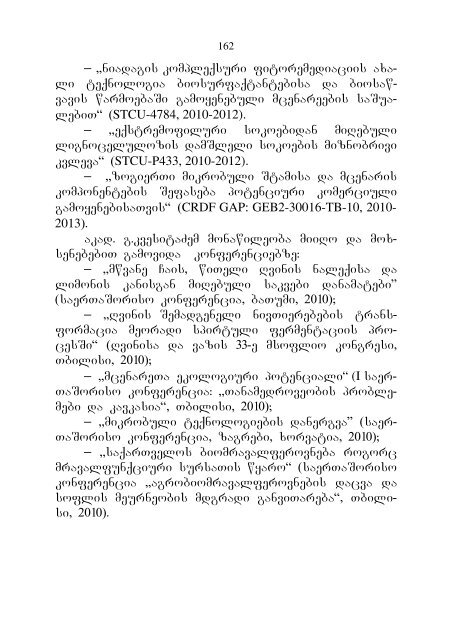 162
– „ნიადაგის კომპლექსური ფიტორემედიაციის ახა-
ლი ტექნოლოგია ბიოსურფაქტანტებისა და ბიოსაწ-
ვავის წარმოებაში გამოყენებული მცენარეების საშუა-
ლებით“ (STCU-4784, 2010-2012).
– „ექსტრემოფილური სოკოებიდან მიღებული
ლიგნოცელულოზის დამშლელი სოკოების მიზნობრივი
კვლევა“ (STCU-P433, 2010-2012).
– „ზოგიერთი მიკრობული შტამისა და მცენარის
კომპონენტების შეფასება პოტენციური კომერციული
გამოყენებისათვის“ (CRDF GAP: GEB2-30016-TB-10, 2010-
2013).
აკად. გ.კვესიტაძემ მონაწილეობა მიიღო და მოხ-
სენებებით გამოვიდა კონფერენციებზე:
– „მწვანე ჩაის, წითელი ღვინის ნალექისა და
ლიმონის კანისგან მიღებული საკვები დანამატები”
(საერთაშორისო კონფერენცია, ბათუმი, 2010);
– „ღვინის შემადგენელი ნივთიერებების ტრანს-
ფორმაცია მეორადი სპირტული ფერმენტაციის პრო-
ცესში“ (ღვინისა და ვაზის 33-ე მსოფლიო კონგრესი,
თბილისი, 2010);
– „მცენარეთა ეკოლოგიური პოტენციალი“ (I საერ-
თაშორისო კონფერენცია: „თანამედროვეობის პრობლე-
მები და კავკასია“, თბილისი, 2010);
– „მიკრობული ტექნოლოგიების დანერგვა” (საერ-
თაშორისო კონფერენცია, ზაგრები, ხორვატია, 2010);
– „საქართველოს ბიომრავალფეროვნება როგორც
მრავალფუნქციური სურსათის წყარო“ (საერთაშორისო
კონფერენცია „აგრობიომრავალფეროვნების დაცვა და
სოფლის მეურნეობის მდგრადი განვითარება“, თბილი-
სი, 2010).